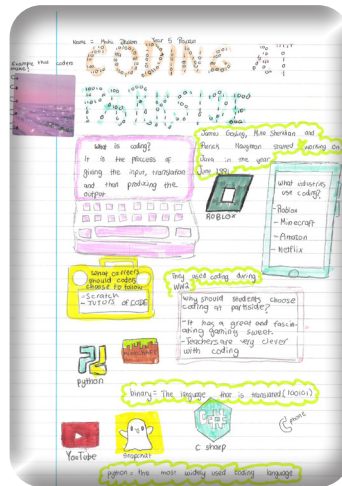 Year 5
CODING AT
Example that coders
make
What is coding?
It is the process of
giving the input, translation
and then producing the
output
James Gosling, Mike Sheridan and
Patrick Naughton started working on
Java in the year
June 1991
ROBLOX
What industries
use coding?
- Roblox
- Minecraft
- Amazon
- Netflix
should coders
choose to follow
- Scratch
- TUTORS OF CODE
They used coding during
WW2
Why should students choose
coding at parkside?
- It has a great and fascin-
ating gaming sweet.
- Teachers are very clever
with coding
python
binary = The language that is translated (10010)
YouTube
Snapchat
C sharp
python = the most widely used coding language